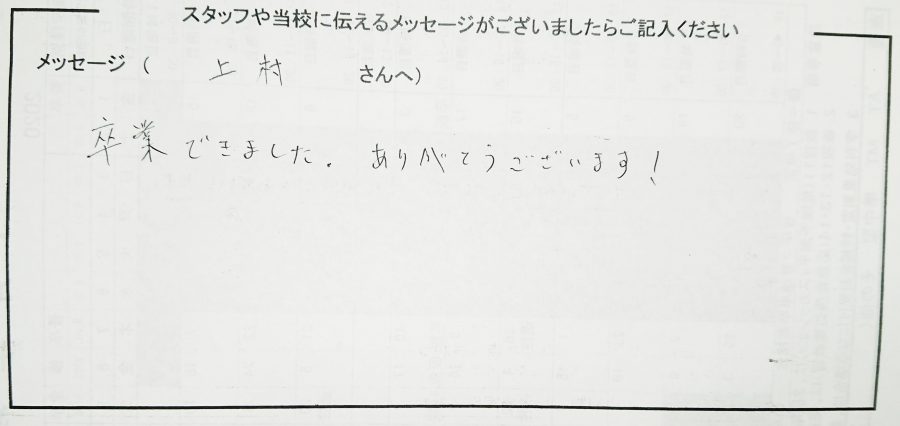 スタッフや当校に伝えるメッセージがございましたらご記入ください
メッセージ（ 上村 さんへ）
卒業できました。ありがとうございます！